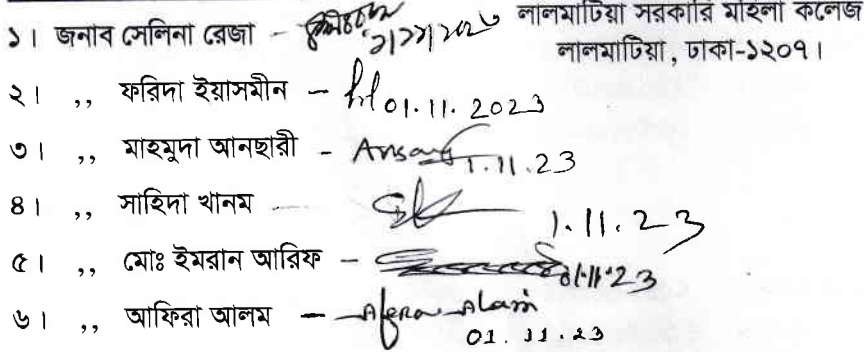 লালমাটিয়া সরকারি মহিলা কলেজ
লালমাটিয়া, ঢাকা-১২০৭।
১। জনাব সেলিনা রেজা -
২। ,, ফরিদা ইয়াসমীন - 01.11.2023
৩। ,, মাহমুদা আনছারী - Ansary 1.11.23
৪। ,, সাহিদা খানম 1.11.23
৫। ,, মোঃ ইমরান আরিফ - 01.11.23
৬। ,, আফিরা আলম - Afera Alam 01.11.23